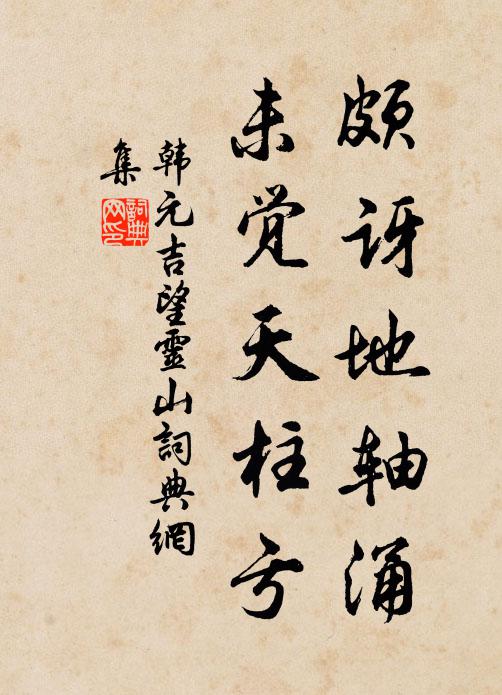 颇讶地轴涌
未觉天柱亏
韩元吉望靈山詞典網
集
詞典
网印